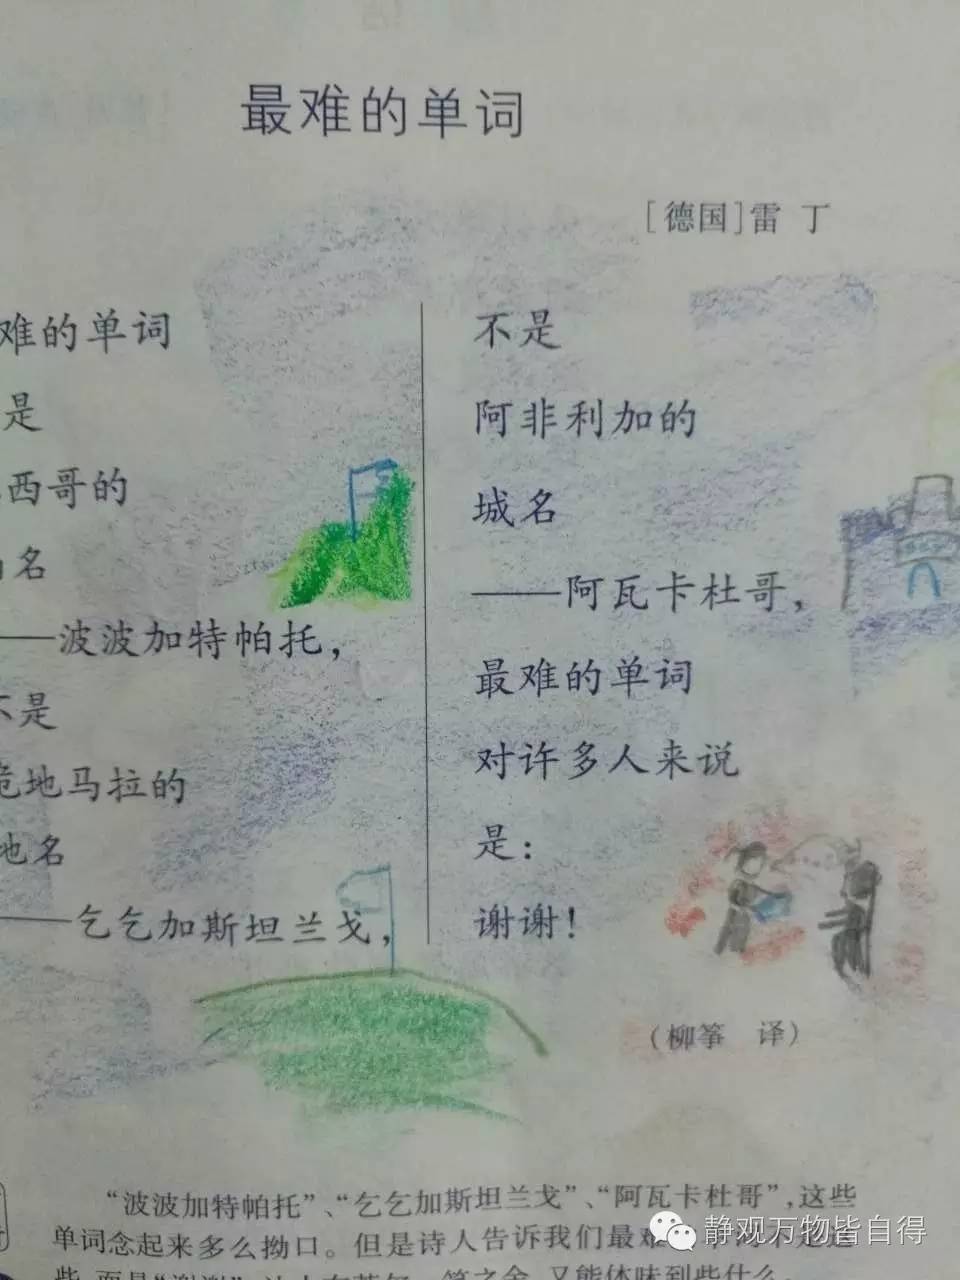 最难的单词
[德国]雷 丁
难的单词
是
西哥的
名
——波波加特帕托，
不是
危地马拉的
地名
——乞乞加斯坦兰戈，
不是
阿非利加的
城名
——阿瓦卡杜哥，
最难的单词
对许多人来说
是：
谢谢！
（柳筝 译）
“波波加特帕托”、“乞乞加斯坦兰戈”、“阿瓦卡杜哥”，这些
单词念起来多么拗口。但是诗人告诉我们最难
静观万物皆自得